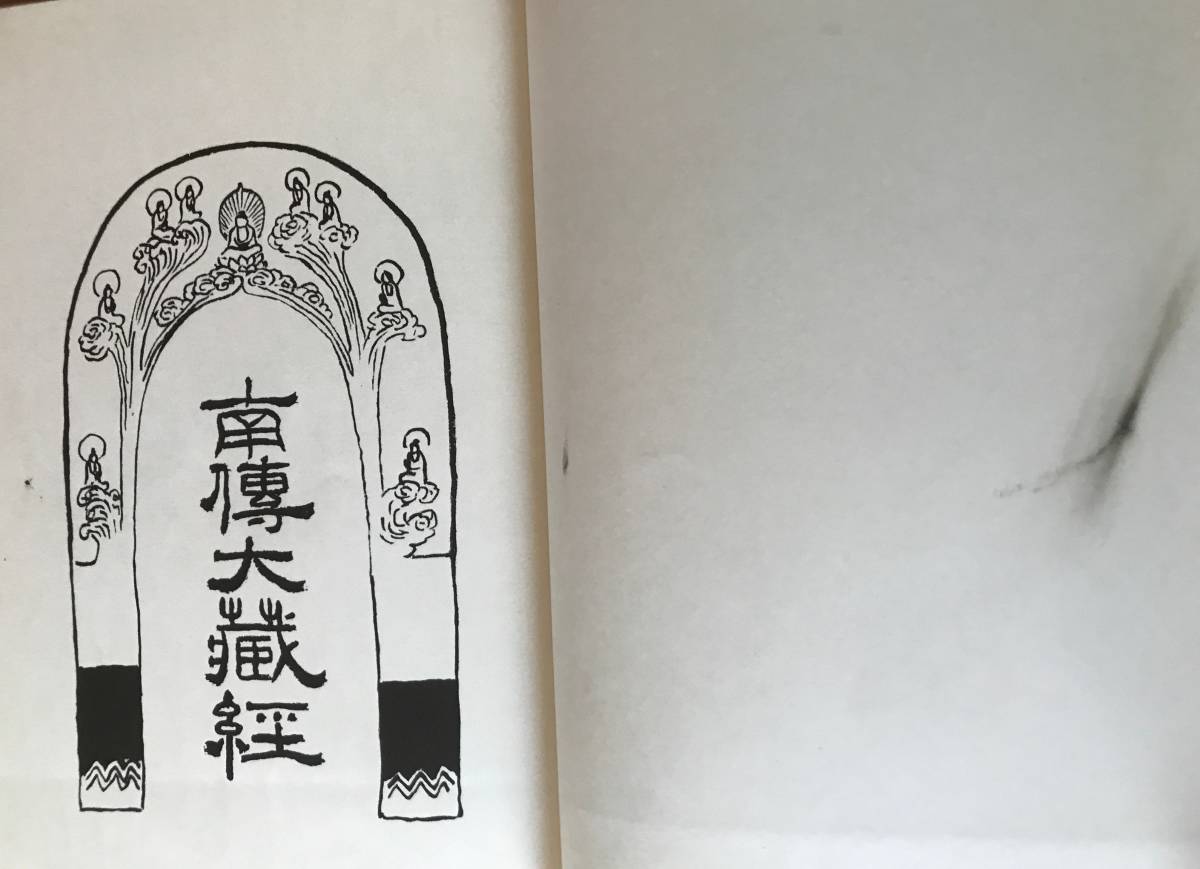 南傳大藏經